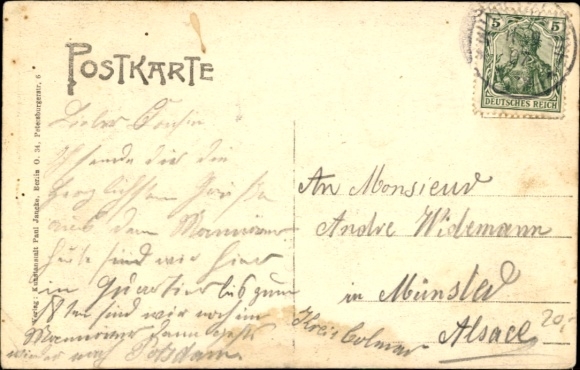 POSTKARTE
5
DEUTSCHES REICH
Verlag: Kunstanstalt Paul Jangke, Berlin O. 34, Petersburgerstr. 6
Lieber Cousin
Ich sende dir die
herzlichsten Grüße
aus dem Manöver
heute sind wir hier
in Quartier bis zum
8ten sind wir noch im
Manöver dann geht's
wieder nach Potsdam
An Monsieur
Andre Widemann
in Münster
Kreis Colmar
Alsace
20,-